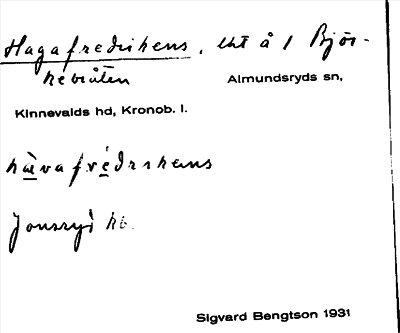 Hagafredrikens, lht å 1 Björ-
kebråten
Almundsryds sn,
Kinnevalds hd, Kronob. l.
hævafrédrikens
Jonsryd
Sigvard Bengtson 1931